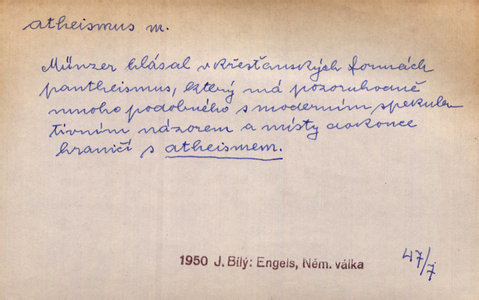 atheismus m.
Münzer hlásal v křesťanských formách
pantheismus, který má pozoruhodně
mnoho podobného s moderním spekula-
tivním názorem a místy dokonce
hraničí s atheismem.
1950 J. Bílý: Engels, Něm. válka
47/7